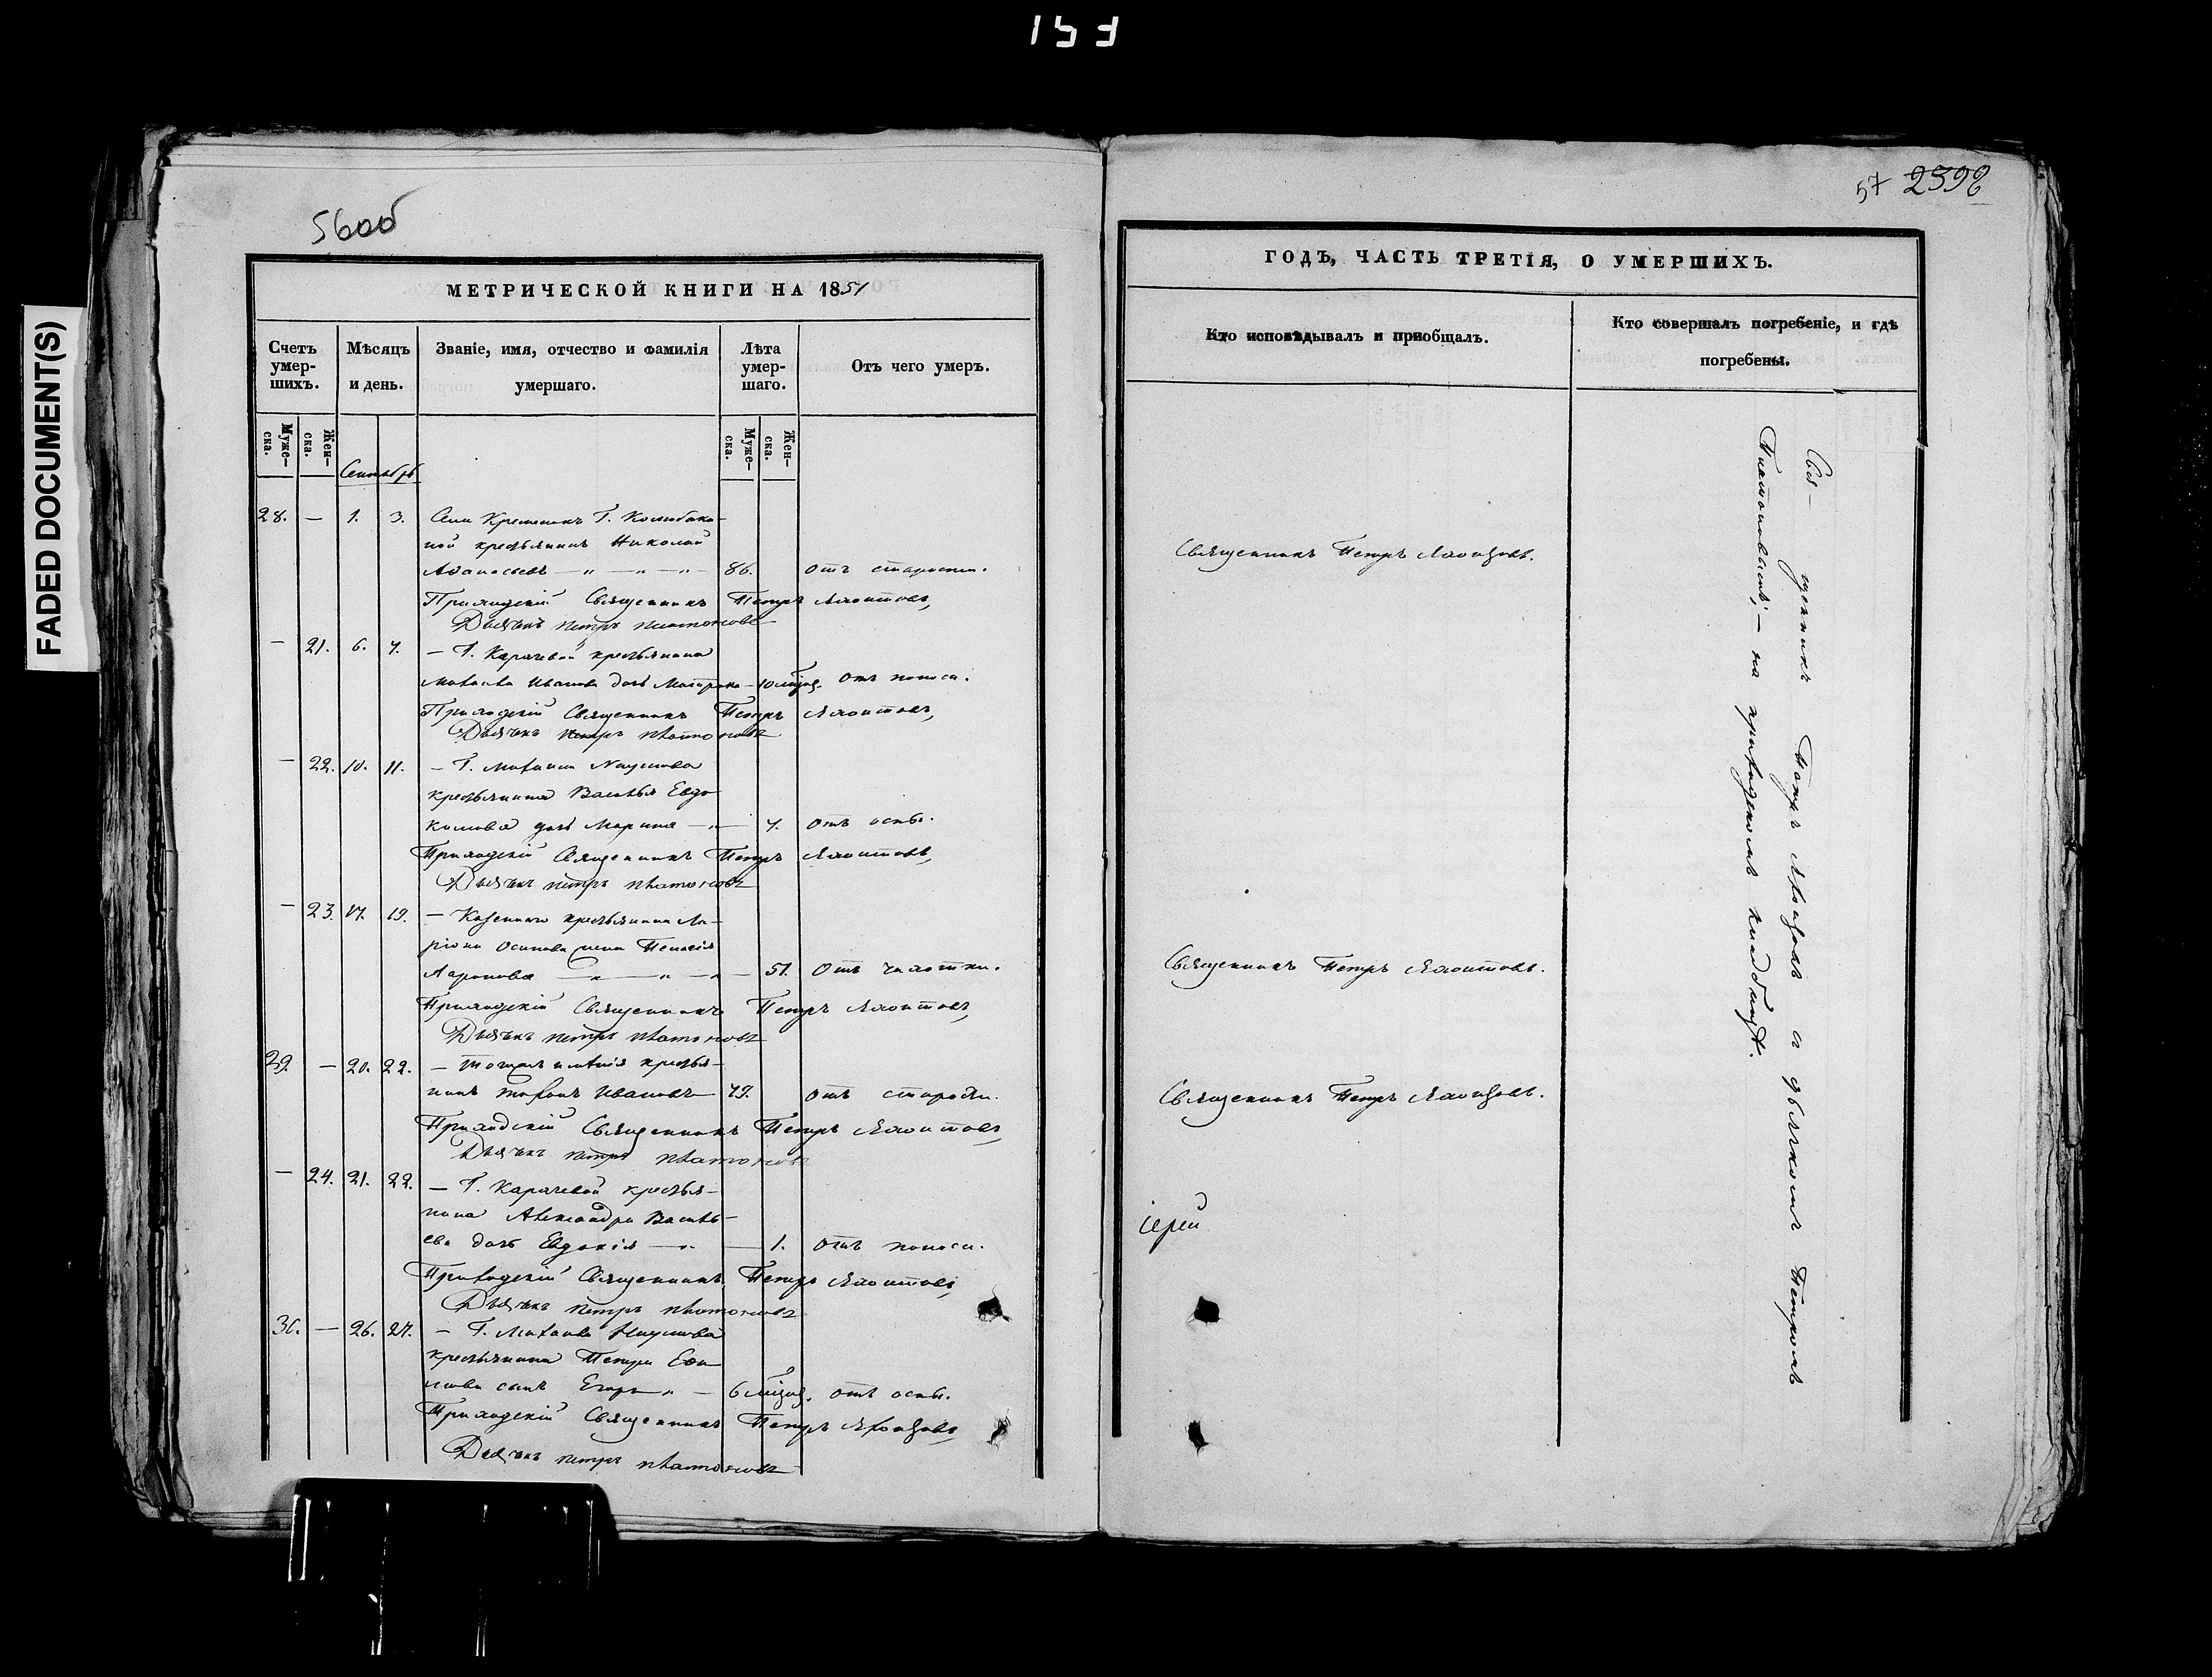 153
FADED DOCUMENT(S)
560об
МЕТРИЧЕСКОЙ КНИГИ НА 1851
Счетъ умер-шихъ.
Мѣсяцъ и день.
Званіе, имя, отчество и фамилія умершаго.
Лѣта умер-шаго.
Отъ чего умеръ.
Муже-ска.
Жен-ска.
Муже-ска.
Жен-ска.
Сентябрь
28. — 1. 3. Села Кременокъ Г. Колыбаки-
ной крестьянинъ Николай
Аѳанасьевъ — „ — „ — 86. отъ старости.
Приходскій Священникъ Петръ
Дьячекъ петръ платоновъ
— 21. 6. 7. — Г. Карачевой крестьянина
Иванова дочь Матрона — 10 отъ поноса.
Приходскій Священникъ Петръ
Дьячекъ петръ платоновъ
— 22. 10. 11. — Г. Наумова
крестьянина Василья Евдо
кимова дочь Марина — „ — 7. отъ оспы.
Приходскій Священникъ Петръ
Дьячекъ петръ платоновъ
— 23. 17. 19. — Казеннаго крестьянина Ла-
ріона Осипова жена Пелагія
— „ — „ — 51. Отъ чахотки.
Приходскій Священникъ Петръ
Дьячекъ петръ платоновъ
29. — 20. 22. — Тогожъ имѣнія крестья-
нинъ Ивановъ 79. отъ старости.
Приходскій Священникъ Петръ
Дьячекъ петръ платоновъ
— 24. 21. 22. — Г. Карачевой крестья-
нина Александра Василь-
ева дочь Евдокія — „ — 1. отъ поноса.
Приходскій Священникъ Петръ
Дьячекъ петръ платоновъ
30. — 26. 27. — Г. Наумова
крестьянина Петра Ефи
мова сынъ Егоръ „ — 6 отъ оспы.
Приходскій Священникъ Петръ
Дьячекъ петръ платоновъ
57 2392
ГОДЪ, ЧАСТЬ ТРЕТІЯ, О УМЕРШИХЪ.
Кто исповѣдывалъ и пріобщалъ.
Кто совершалъ погребеніе, и гдѣ погребены.
Священникъ Петръ
Священникъ Петръ
Священникъ Петръ
іерей
Свя— щенникъ Петръ съ дьячкомъ Петромъ
Платоновымъ, — на приходскомъ кладбищѣ.